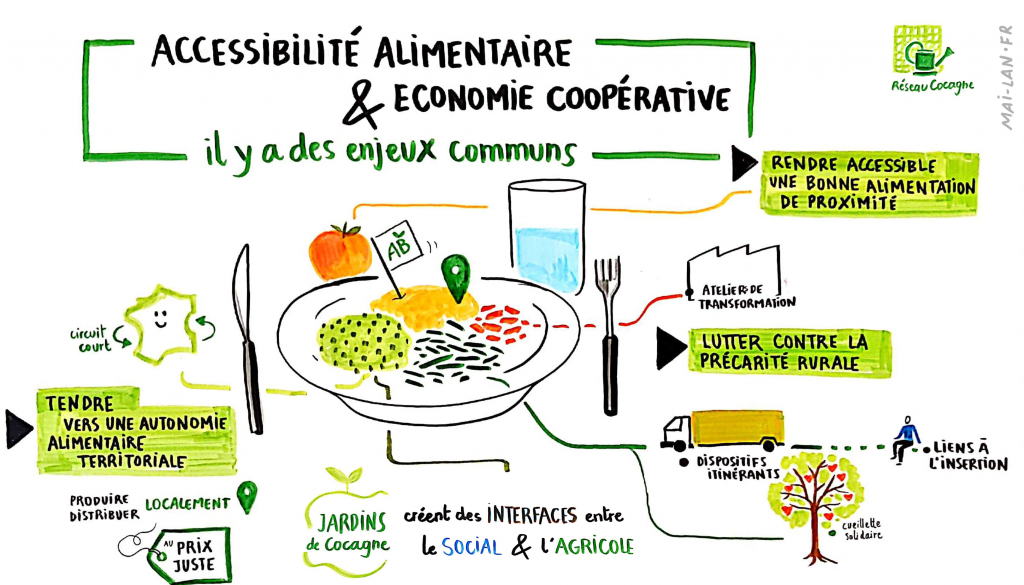 ACCESSIBILITÉ ALIMENTAIRE
& ECONOMIE COOPÉRATIVE
il y a des enjeux communs
Réseau Cocagne
MAI-LAN.FR
RENDRE ACCESSIBLE
UNE BONNE ALIMENTATION
DE PROXIMITÉ
AB
ATELIER DE
TRANSFORMATION
circuit
court
LUTTER CONTRE LA
PRÉCARITÉ RURALE
TENDRE
VERS UNE AUTONOMIE
ALIMENTAIRE
TERRITORIALE
DISPOSITIFS
ITINÉRANTS
LIENS À
L'INSERTION
PRODUIRE
DISTRIBUER
LOCALEMENT
AU PRIX
JUSTE
JARDINS
de Cocagne
créent des INTERFACES entre
le SOCIAL & L'AGRICOLE
cueillette
solidaire